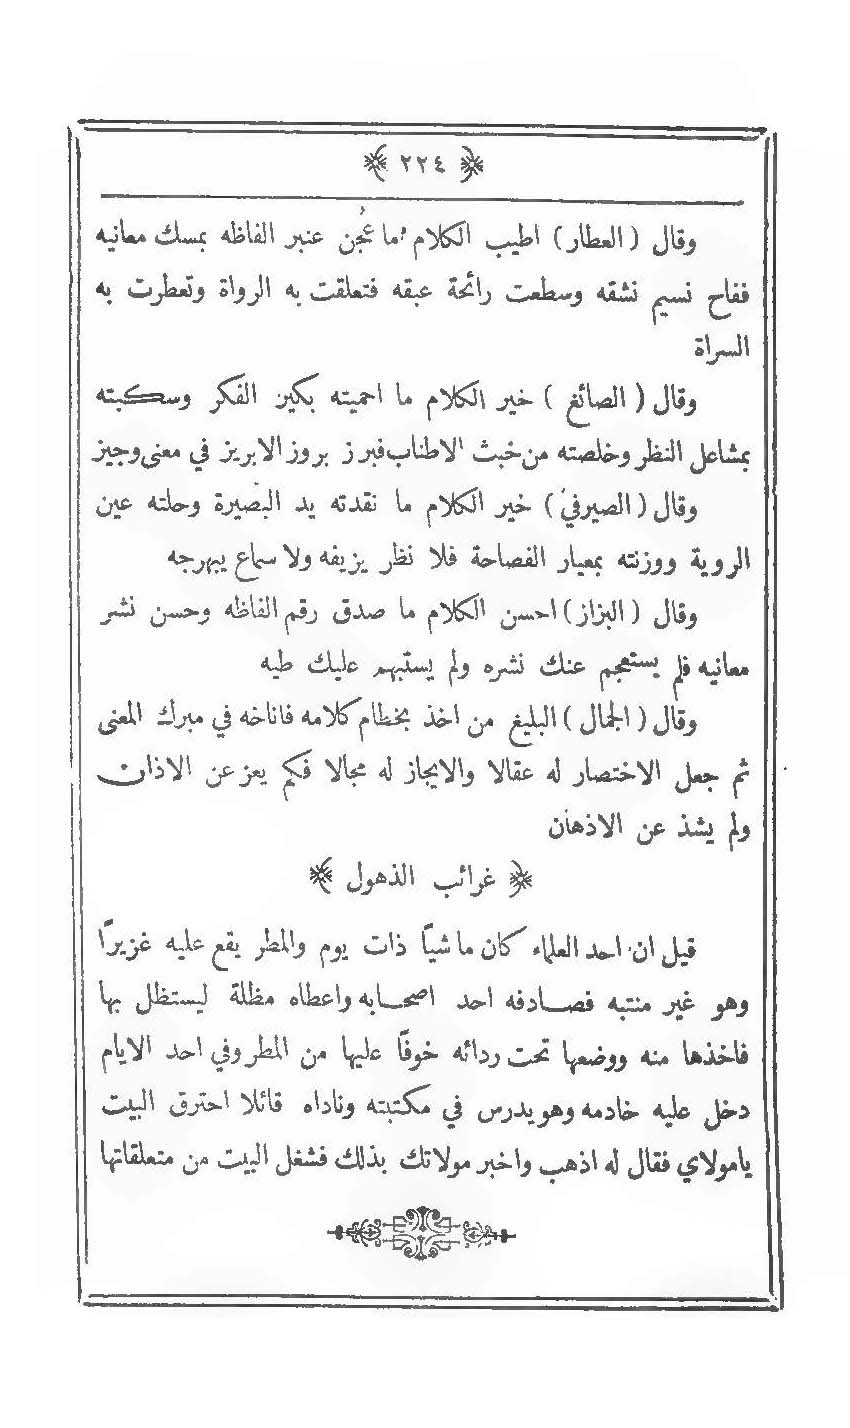 ﴿ ٢٢٤ ﴾
وقال ( العطار ) اطيب الكلام ما عُجن عنبر الفاظه بمسك معانيه
ففاح نسيم نشقه وسطعت رائحة عبقه فتعلقت به الرواة وتعطرت به
السراة
وقال ( الصائغ ) خير الكلام ما احميته بكير الفكر وسكبته
بمشاعل النظر وخلصته من خبث الاطناب فبرز بروز الابريز في معنى وجيز
وقال ( الصيرفي ) خير الكلام ما نقدته يد البصيرة وحلته عين
الروية ووزنته بمعيار الفصاحة فلا نظر يزيفه ولا سماع يبهرجه
وقال ( البزاز ) احسن الكلام ما صدق رقم الفاظه وحسن نشر
معانيه فلم يستعجم عنك نشره ولم يستبهم عليك طيه
وقال ( الجمال ) البليغ من اخذ بخطام كلامه فاناخه في مبرك المعنى
ثم جعل الاختصار له عقالا والايجاز له مجالا فكم يعز عن الاذان
ولم يشذ عن الاذهان
﴿ غرائب الذهول ﴾
قيل ان احد العلماء كان ماشياً ذات يوم والمطر يقع عليه غزيراً
وهو غير منتبه فصادفه احد اصحابه واعطاه مظلة ليستظل بها
فاخذها منه ووضعها تحت ردائه خوفاً عليها من المطر وفي احد الايام
دخل عليه خادمه وهو يدرس في مكتبته وناداه قائلا احترق البيت
يامولاي فقال له اذهب واخبر مولاتك بذلك فشغل البيت من متعلقاتها